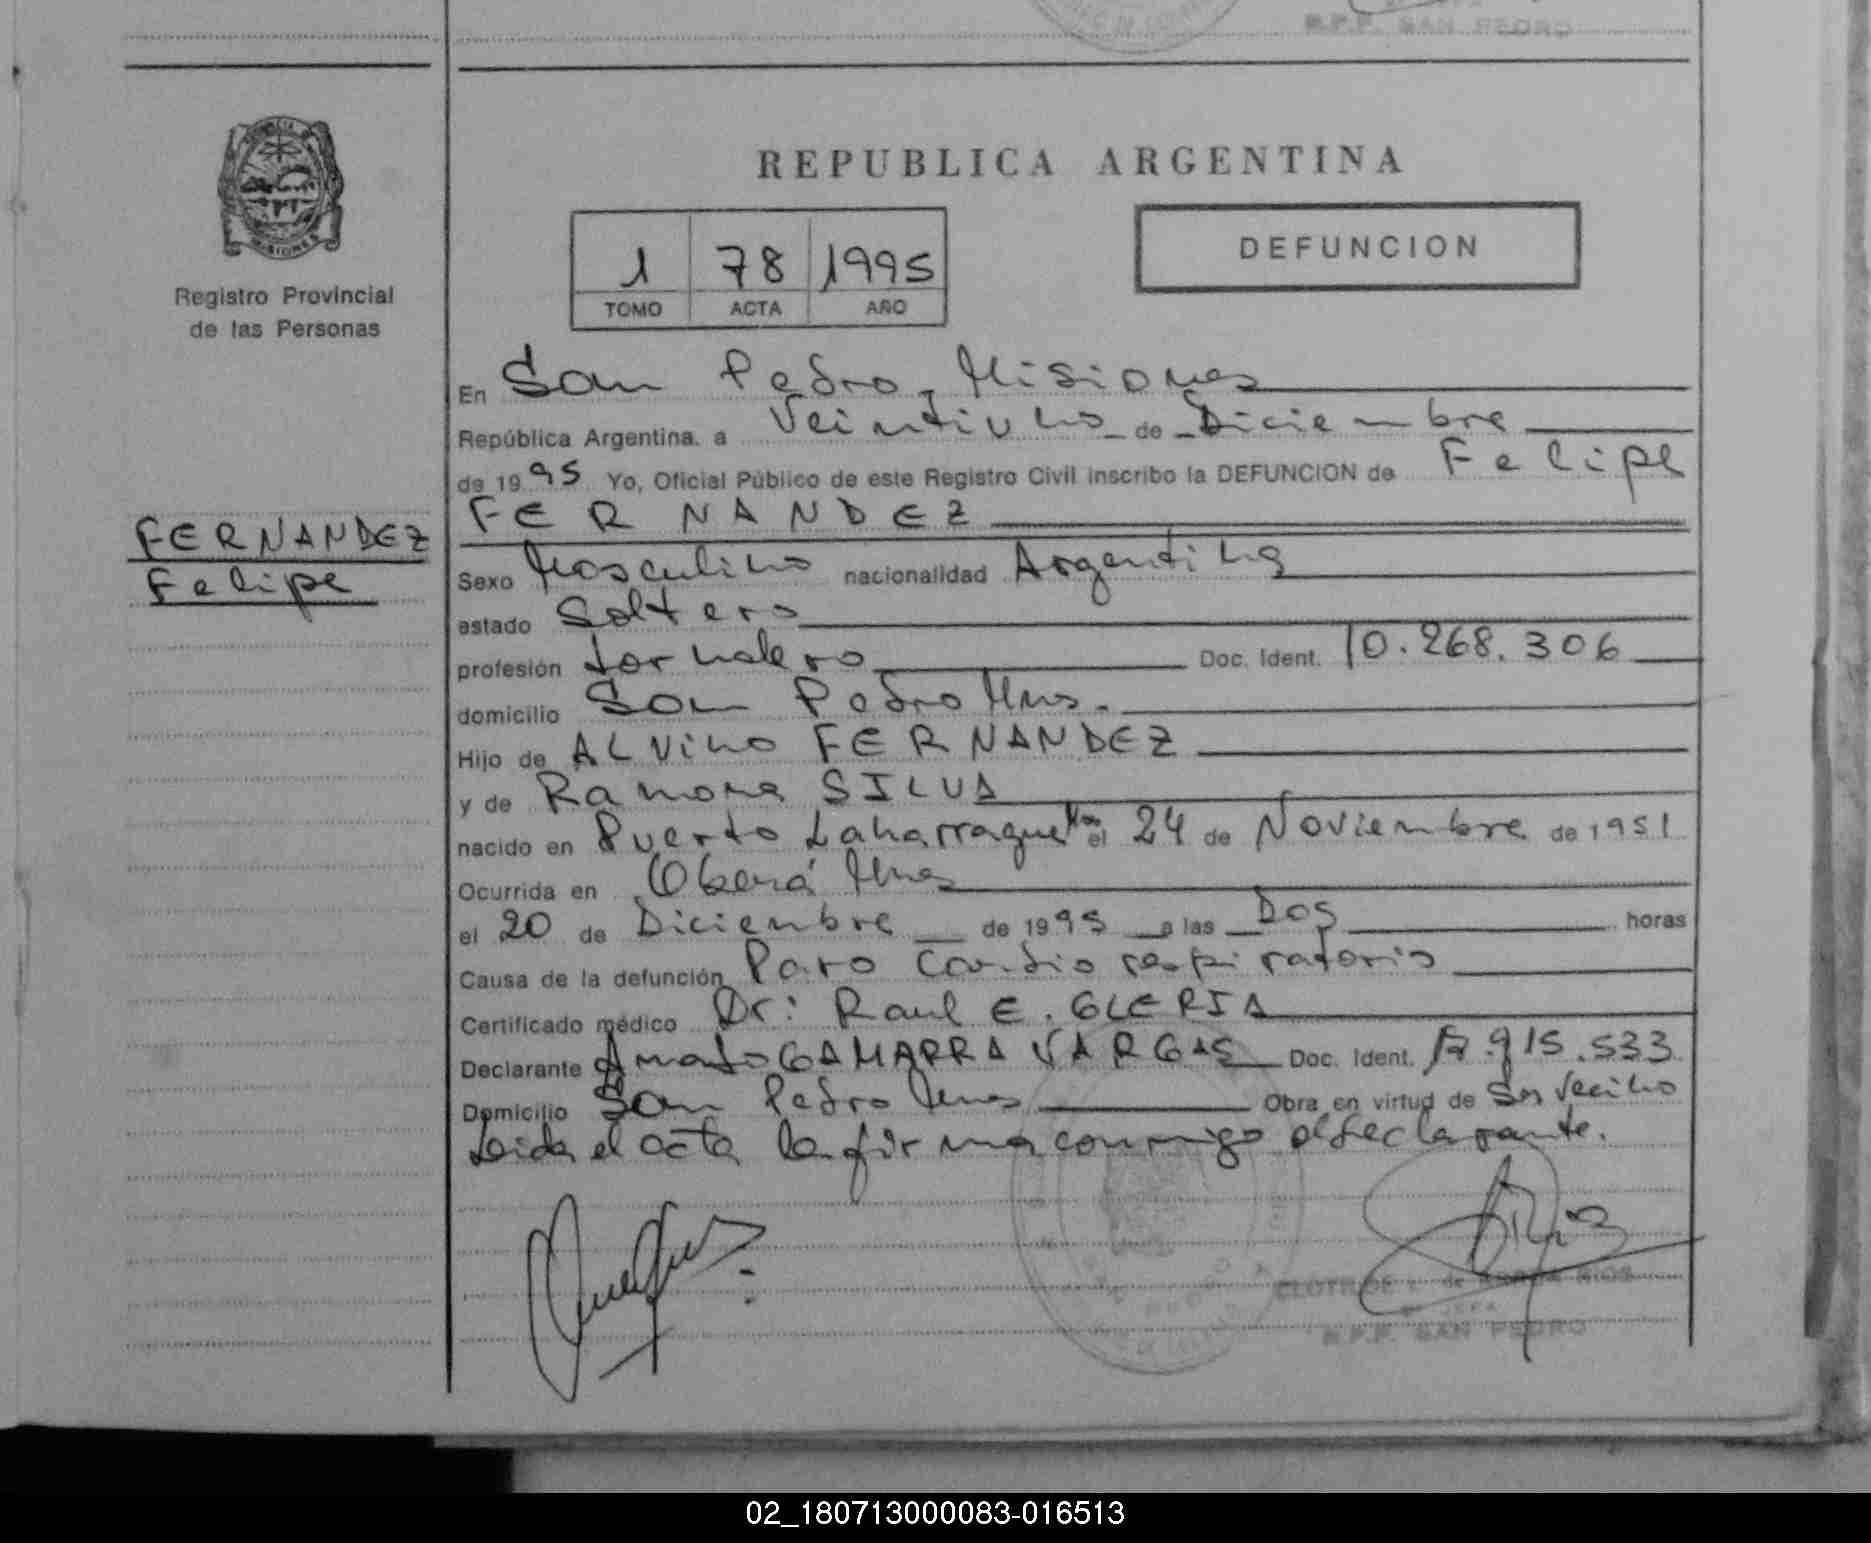 R.P.P. SAN PEDRO
PROVINCIA DE
MISIONES
Registro Provincial
de las Personas
REPUBLICA ARGENTINA
1 78 1995
TOMO ACTA AÑO
DEFUNCION
En San Pedro, Misiones
República Argentina. a Veintiuno de Diciembre
de 1995 Yo, Oficial Público de este Registro Civil inscribo la DEFUNCION de Felipe
FERNANDEZ
FERNANDEZ
Felipe
Sexo Masculino nacionalidad Argentina
estado Soltero
profesión Jornalero Doc. Ident. 10.268.306
domicilio San Pedro Mnes.
Hijo de ALVino FERNANDEZ
y de Ramona SILVA
nacido en Puerto Laharrague Mnes el 24 de Noviembre de 1951
Ocurrida en Oberá Mnes
el 20 de Diciembre de 1995 a las Dos horas
Causa de la defunción Paro Cardio respiratorio
Certificado médico Dr: Raul E. GLERIA
Declarante Amado GAMARRA VARGAS Doc. Ident. .915.533
Domicilio San Pedro Mnes Obra en virtud de Ser Vecino
Leida el acta la firma conmigo el declarante.
CLOTILDE RIOS
JEFA
R.P.P. SAN PEDRO
02_180713000083-016513